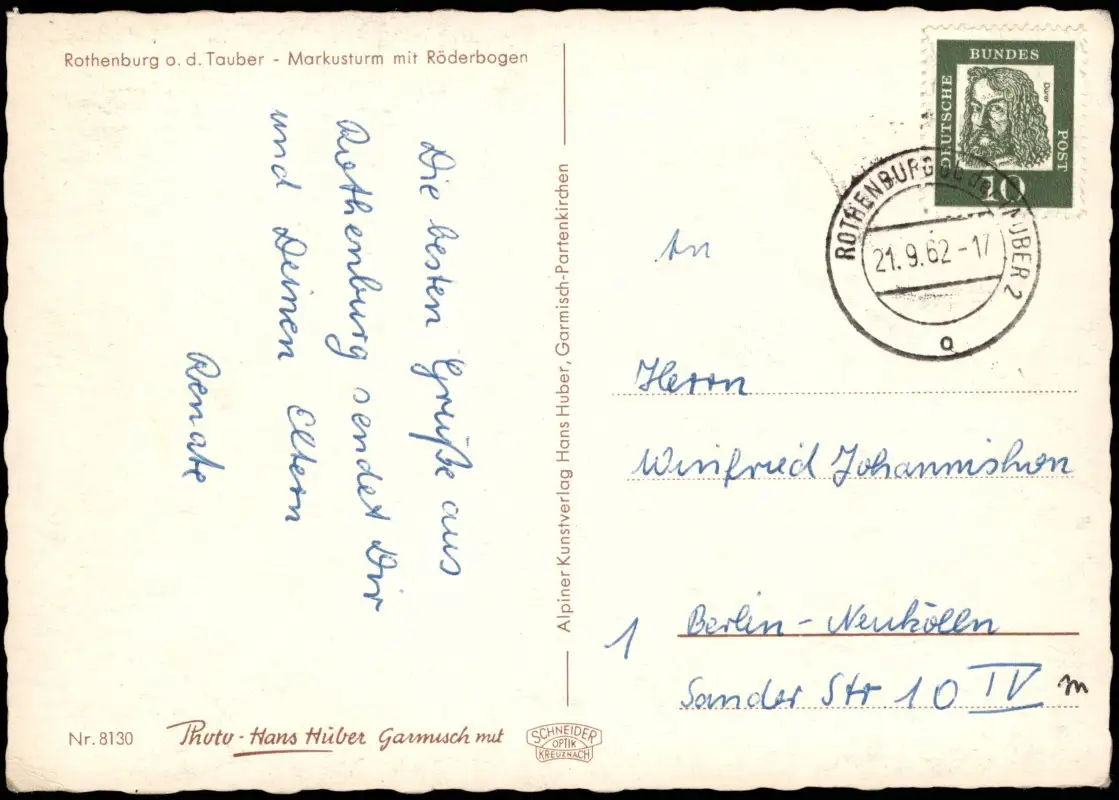 Rothenburg o. d. Tauber - Markusturm mit Röderbogen
Die besten Grüße aus
Rothenburg sendet Dir
und Deinen Eltern
Renate
Nr. 8130
Photo - Hans Huber Garmisch mit
SCHNEIDER
OPTIK
KREUZNACH
Alpiner Kunstverlag Hans Huber, Garmisch-Partenkirchen
DEUTSCHE
BUNDES
POST
Dürer
10
ROTHENBURG ob der TAUBER 2
21.9.62-17
a
An
Herrn
Winfried
1 Berlin - Neukölln
Sander Str 10 IV
m